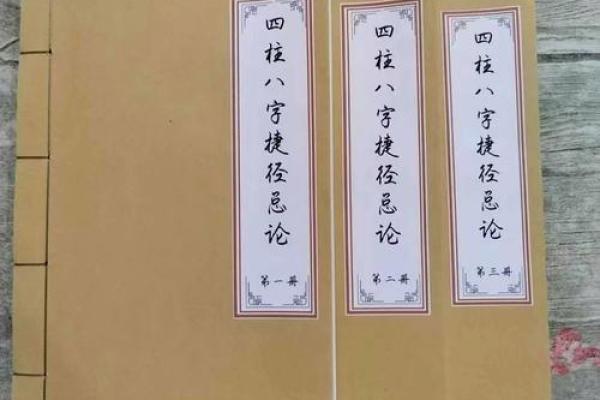 四柱八字捷径总论
第一册
四柱八字捷径总论
第二册
四柱八字捷径总论
第三册